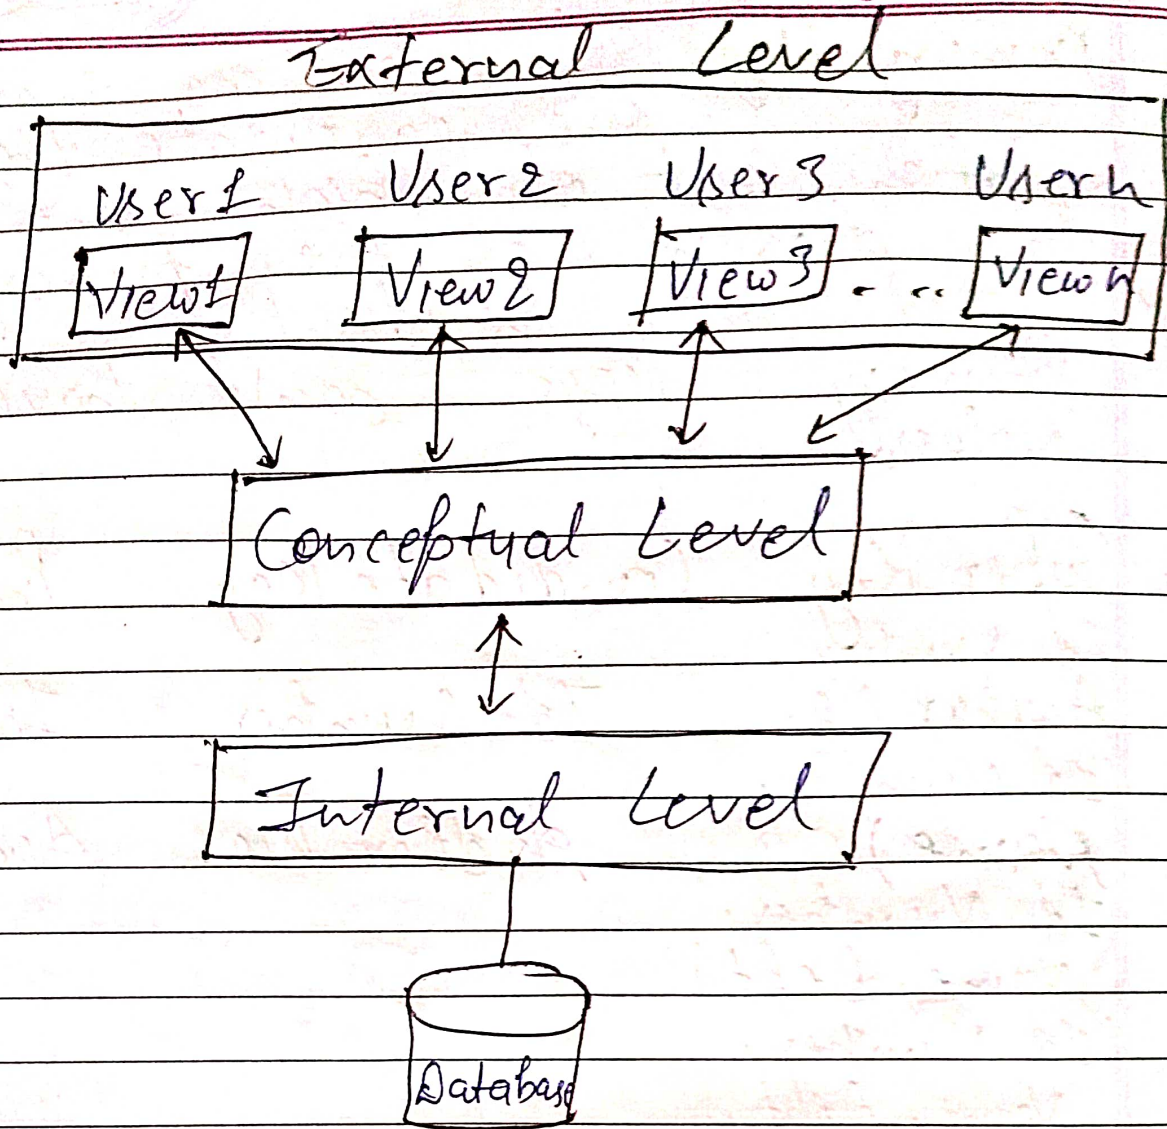 External Level
User 1 User 2 User 3 User n
View 1 View 2 View 3 . . . View n
Conceptual Level
Internal Level
Database